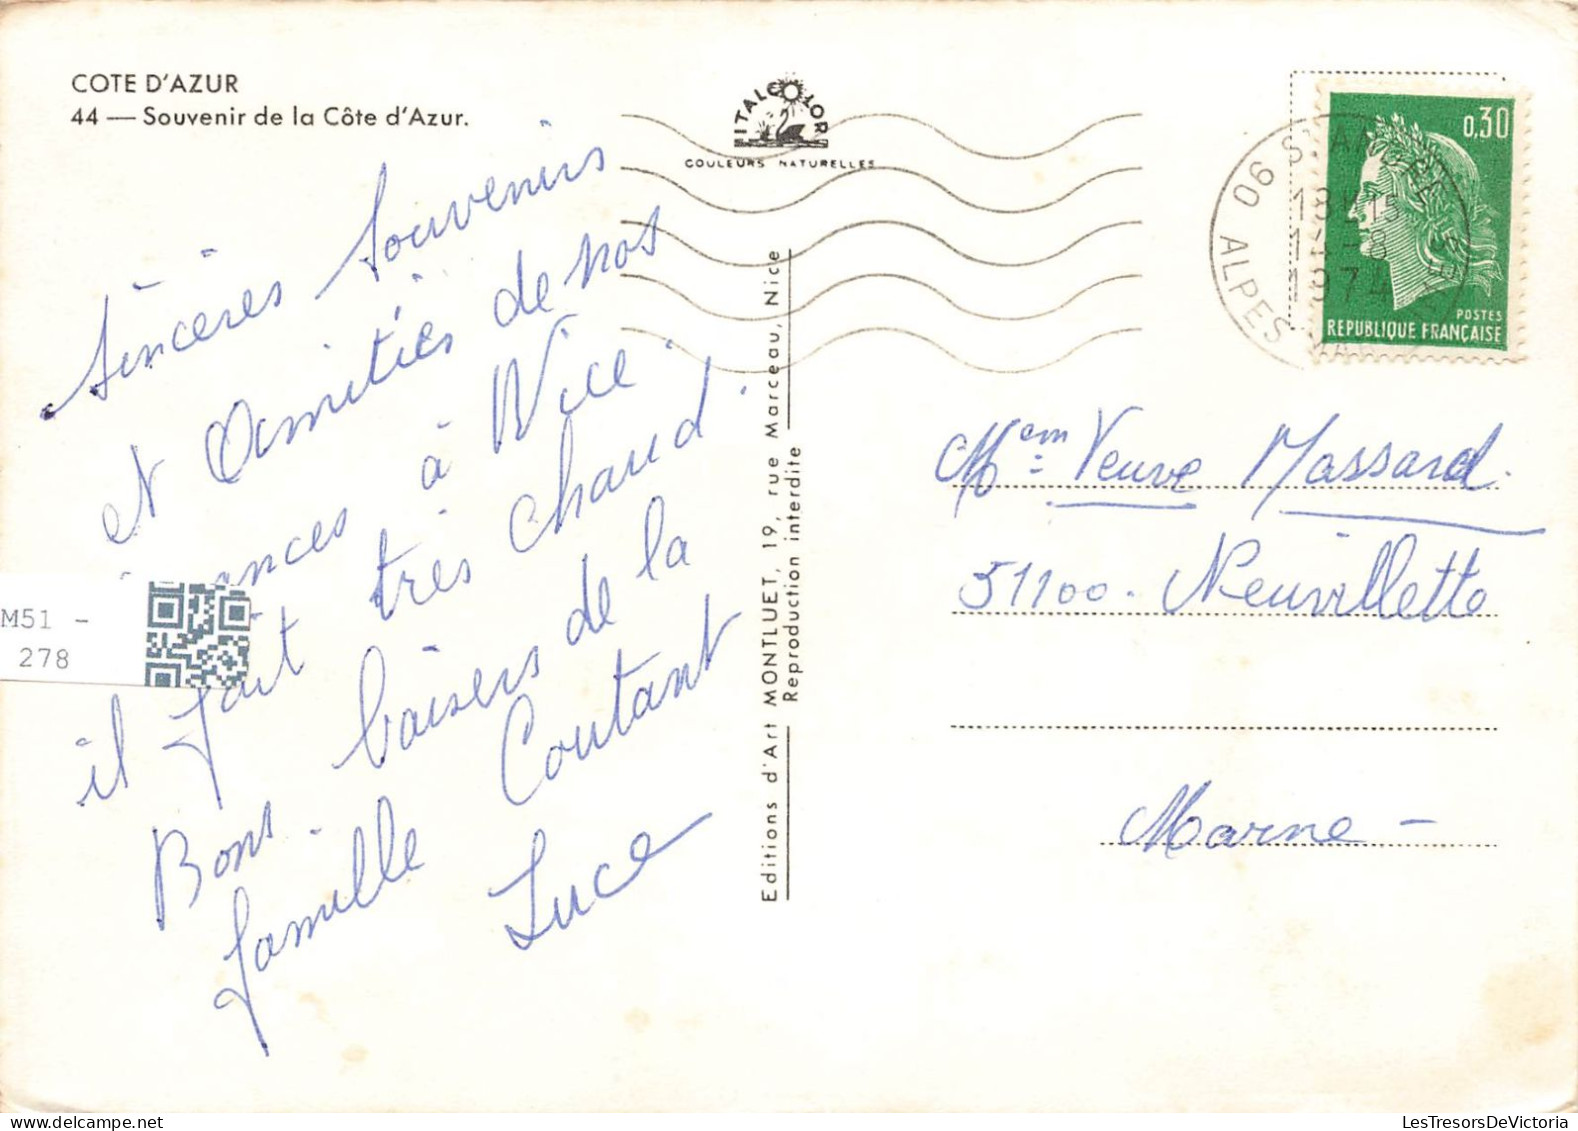 COTE D'AZUR
44 — Souvenir de la Côte d'Azur.
ITALCOLOR
COULEURS NATURELLES
Sincères Souvenirs
et Amitiés de nos
ances à Nice
il fait très chaud.
Bons baisers de la
famille Coutant
Luce
M51 -
278
Editions d'Art MONTLUET, 19, rue Marceau, Nice
Reproduction interdite
0,30
POSTES
REPUBLIQUE FRANÇAISE
06
ALPES
1974
Mem Veuve Massard.
51100. Neuvillette
Marne -
LesTresorsDeVictoria.delcampe.net
LesTresorsDeVictoria